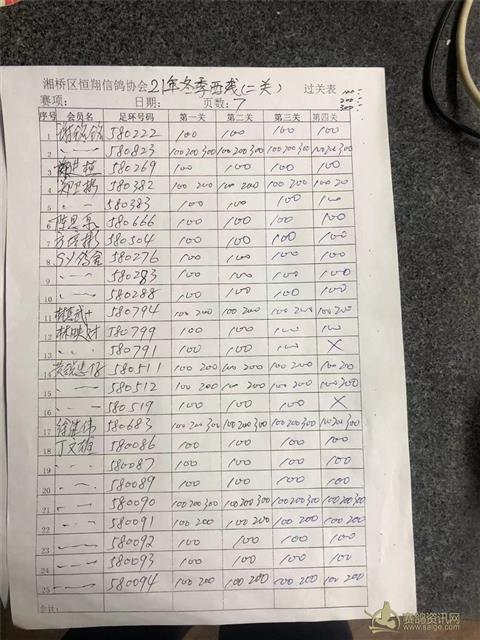 湘桥区恒翔信鸽协会21年冬季西线(二关) 过关表 100
200
300
赛项: 日期: 页数: 7
序号 会员名 足环号码 第一关 第二关 第三关 第四关
1 580222 100 100 100 100
2 580823 100 200 300 100 200 300 100 200 300 100 200 300
3 580269 100 100 100 100
4 580382 100 200 100 200 100 200 100 200
5 580383 100 100 100 100
6 580666 100 100 100 100
7 580504 100 100 100 100
8 580276 100 100 100 100
9 580283 100 100 100 100
10 580288 100 100 100 100
11 580794 100 200 100 200 100 200 100 200
12 林映财 580799 100 100 100 100
13 580791 100 100 100 ×
14 580511 100 200 100 200 100 200 100 200
15 580512 100 200 100 200 100 200 100 200
16 580519 100 100 100 ×
17 580683 100 200 300 100 200 300 100 200 300 100 200 300
18 丁文雄 580086 100 100 100 100
19 580087 100 100 100 100
20 580089 100 100 100 100
21 580090 100 200 300 100 200 300 100 200 300 100 200 300
22 580091 100 200 100 200 100 200 100 200
23 580092 100 100 100 100
24 580093 100 100 100 100
25 580094 100 200 100 200 100 200 100 200
合计:
赛鸽资讯网
www.saige.com